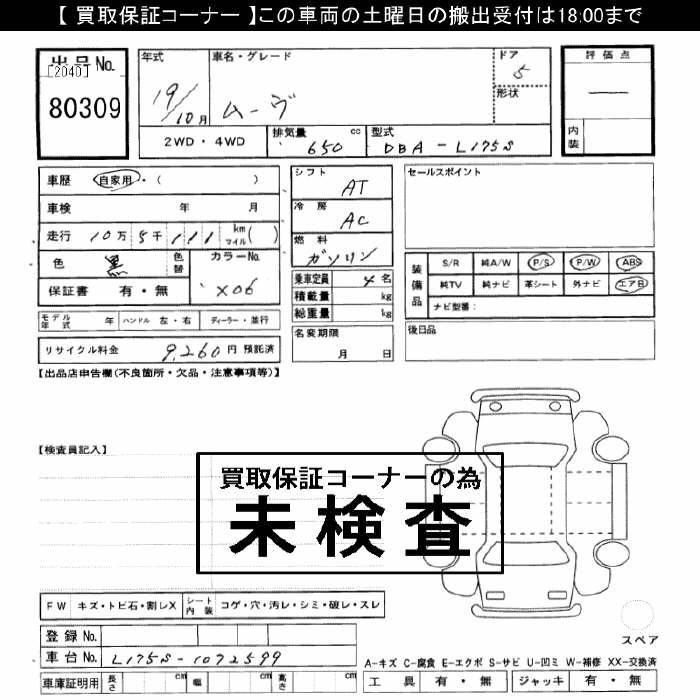 【 買取保証コーナー 】この車両の土曜日の搬出受付は18:00まで
出品No.
[2040]
80309
年式
19/10月
車名・グレード
ムーヴ
ドア
5
形状
2WD・4WD
排気量
650 cc
型式
DBA-L175S
評価点
―
内装
車歴 自家用・( )
車検 年 月
走行 10万 5千 111 km マイル( )
色 黒 色替 カラーNo. X06
保証書 有・無
シフト
AT
冷房
AC
燃料
ガソリン
乗車定員 4 名
積載量 kg
総重量 kg
名変期限
月 日
セールスポイント
装備品
S/R 純A/W P/S P/W ABS
純TV 純ナビ 革シート 外ナビ エアB
ナビ型番:
後日品
モデル年式 年 ハンドル 左・右 ディーラー・並行
リサイクル料金 9,260 円 預託済
【出品店申告欄(不良箇所・欠品・注意事項等)】
【検査員記入】
買取保証コーナーの為
未検査
FW キズ・トビ石・割レX シート内装 コゲ・穴・汚レ・シミ・破レ・スレ
スペア
登録 No.
車台 No. L175S-1072599
車庫証明用 長さ cm 幅 cm 高さ cm
A-キズ C-腐食 E-エクボ S-サビ U-凹ミ W-補修 XX-交換済
工具 有・無 ジャッキ 有・無